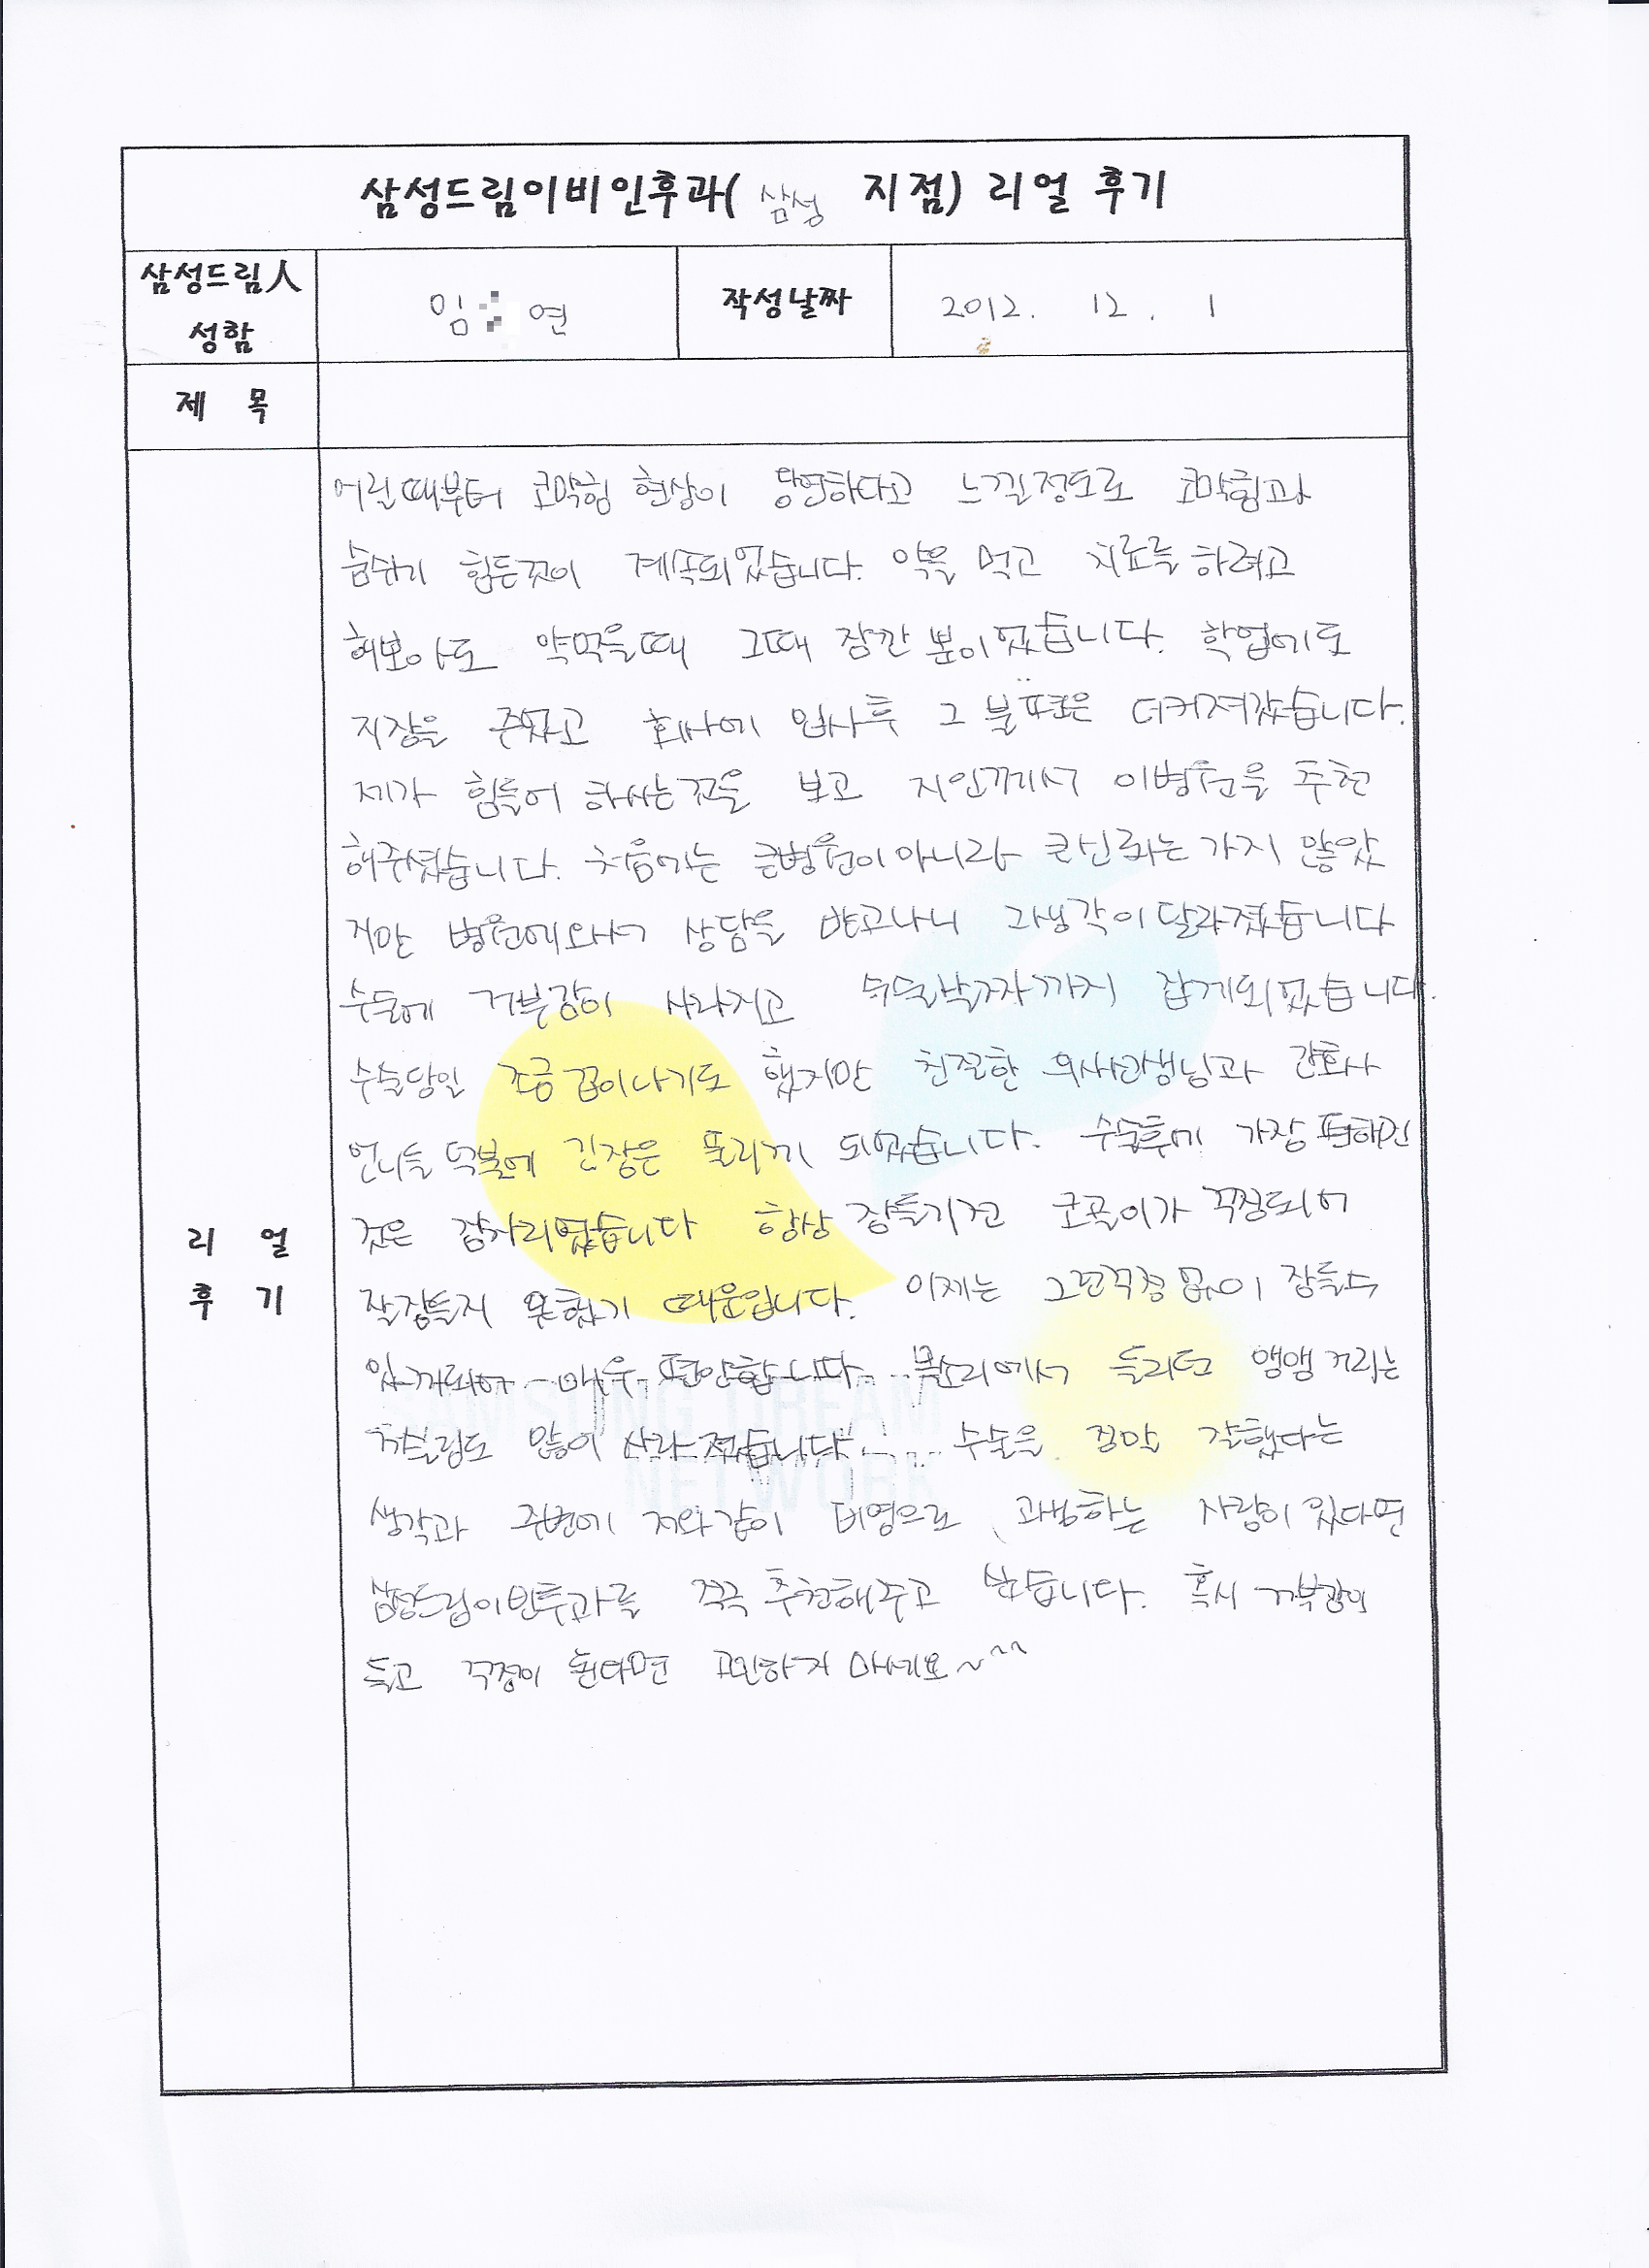 삼성드림이비인후과( 삼성 지점) 리얼 후기
삼성드림人
성함
임 연
작성날짜
2012. 12. 1
제 목
어린때부터 코막힘 현상이 당연하다고 느낄정도로 코막힘과
숨쉬기 힘든것이 계속되었습니다. 약을 먹고 치료를 하려고
해보아도 약먹을때 그때 잠깐 뿐이었습니다. 학업에도
지장을 주었고 회사에 입사후 그 불편은 더커져갔습니다.
제가 힘들어 하시는것을 보고 지인께서 이병원을 추천
해주셨습니다. 처음에는 큰병원이 아니라 큰신뢰는 가지 않았
지만 병원에와서 상담을 받고나니 그생각이 달라졌습니다
수술에 거부감이 사라지고 수술날짜까지 잡게되었습니다.
수술당일 조금 겁이나기도 했지만 친절한 의사선생님과 간호사
언니들 덕분에 긴장은 풀리게 되었습니다. 수술후에 가장 편하던
것은 잠자리였습니다 항상 잠들기전 코골이가 걱정되어
잘잠들지 못했기 때문입니다. 이제는 그런걱정 없이 잠들수
있게되어 매우 편안합니다. 목소리에서 들리던 앵앵 거리는
거슬림도 많이 사라졌습니다. 수술을 정말 잘했다는
생각과 주변에 저와같이 비염으로 고생하는 사람이 있다면
삼성드림이빈후과를 적극 추천해주고 싶습니다. 혹시 거부감이
들고 걱정이 된다면 고민하지 마세요~^^
리 얼
후 기
SAMSUNG DREAM
NETWORK